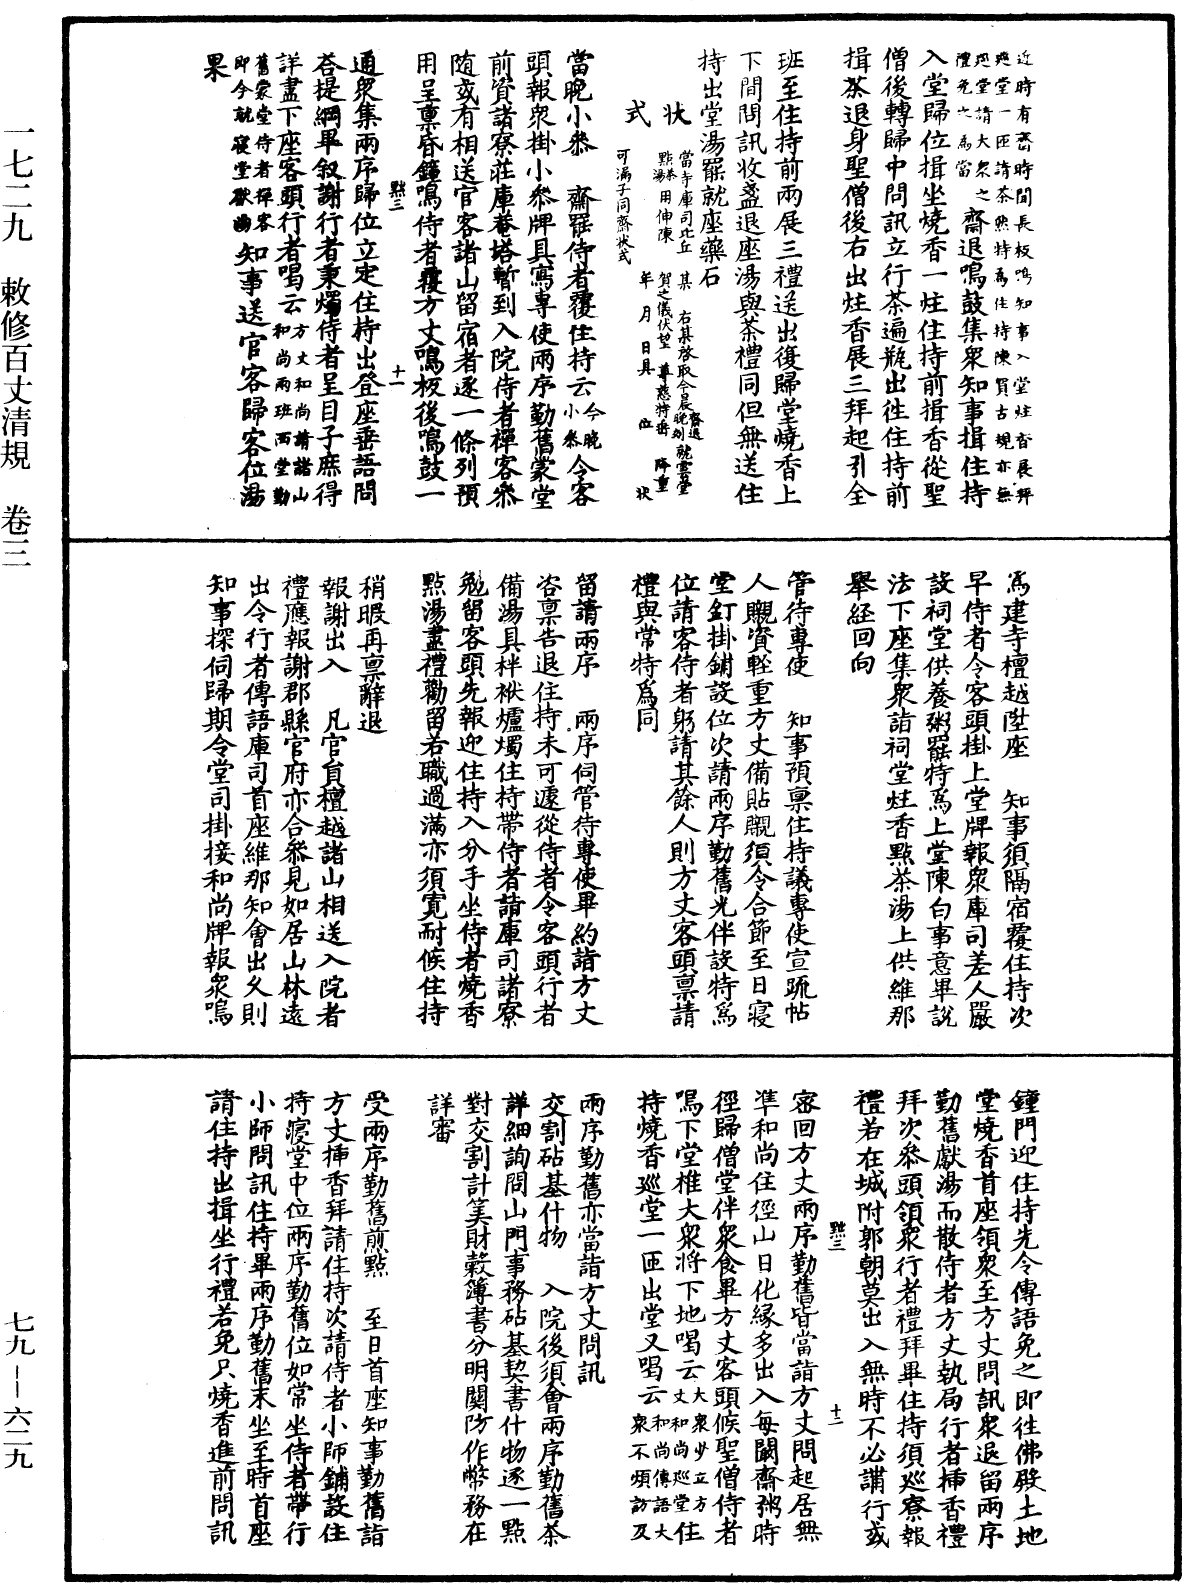 一七二九　敕修百丈清規　卷三
七九—六二九
近時有齋時聞長板鳴知事入堂炷香展拜
巡堂一匝請茶然特爲住持陳賀古規亦無
巡堂請大衆之
禮免之爲當　齋退鳴鼓集衆知事揖住持
入堂歸位揖坐燒香一炷住持前揖香從聖
僧後轉歸中問訊立行茶遍瓶出徃住持前
揖茶退身聖僧後右出炷香展三拜起引全
班至住持前兩展三禮送出復歸堂燒香上
下間問訊收盞退座湯與茶禮同但無送住
持出堂湯罷就座藥石
狀式
當寺庫司比丘　某　右某啓取今晨齋退晚刻就雲堂
點茶湯用伸陳　賀之儀伏望　尊慈特垂　降重
年　月　日具　位　狀
可漏子同齋狀式
當晚小參　齋罷侍者覆住持云今晚小參令客
頭報衆掛小參牌具寫專使兩序勤舊蒙堂
前資諸寮莊庫菴塔暫到入院侍者禪客參
隨或有相送官客諸山留宿者逐一條列預
用呈稟昏鐘鳴侍者覆方丈鳴板後鳴鼓一
點三　十一
通衆集兩序歸位立定住持出登座垂語問
荅提綱畢叙謝行者秉燭侍者呈目子庶得
詳盡下座客頭行者喝云方丈和尚請諸山
和尚兩班西堂勤
舊蒙堂侍者禪客
即今就寢堂獻湯知事送官客歸客位湯
果
爲建寺檀越陞座　知事須隔宿覆住持次
早侍者令客頭掛上堂牌報衆庫司差人嚴
設祠堂供養粥罷特爲上堂陳白事意畢說
法下座集衆詣祠堂炷香點茶湯上供維那
舉經回向
管待專使　知事預稟住持議專使宣疏帖
人䞋資輕重方丈備貼䞋須令合節至日寢
堂釘掛鋪設位次請兩序勤舊光伴設特爲
位請客侍者躬請其餘人則方丈客頭稟請
禮與常特爲同
留請兩序　兩序伺管待專使畢約詣方丈
咨稟告退住持未可遽從侍者令客頭行者
備湯具袢袱爐燭住持帶侍者請庫司諸寮
勉留客頭先報迎住持入分手坐侍者燒香
點湯盡禮勸留若職過滿亦須寬耐候住持
稍暇再稟辭退
報謝出入　凡官員檀越諸山相送入院者
禮應報謝郡縣官府亦合參見如居山林遠
出令行者傳語庫司首座維那知會出久則
知事探伺歸期令堂司掛接和尚牌報衆鳴
鐘門迎住持先令傳語免之即徃佛殿土地
堂燒香首座領衆至方丈問訊衆退留兩序
勤舊獻湯而散侍者方丈執局行者插香禮
拜次參頭領衆行者禮拜畢住持須巡寮報
禮若在城附郭朝莫出入無時不必講行或
點三　十二
密回方丈兩序勤舊皆當詣方丈問起居無
準和尚住徑山日化緣多出入每闞齋粥時
徑歸僧堂伴衆食畢方丈客頭候聖僧侍者
鳴下堂椎大衆將下地喝云大衆少立方
丈和尚巡堂住
持燒香巡堂一匝出堂又喝云和尚傳語大
衆不煩訪及
兩序勤舊亦當詣方丈問訊
交割砧基什物　入院後須會兩序勤舊茶
詳細詢問山門事務砧基契書什物逐一點
對交割計筭財穀簿書分明關防作幣務在
詳審
受兩序勤舊煎點　至日首座知事勤舊詣
方丈插香拜請住持次請侍者小師鋪設住
持寢堂中位兩序勤舊位如常坐侍者帶行
小師問訊住持畢兩序勤舊末坐至時首座
請住持出揖坐行禮若免只燒香進前問訊